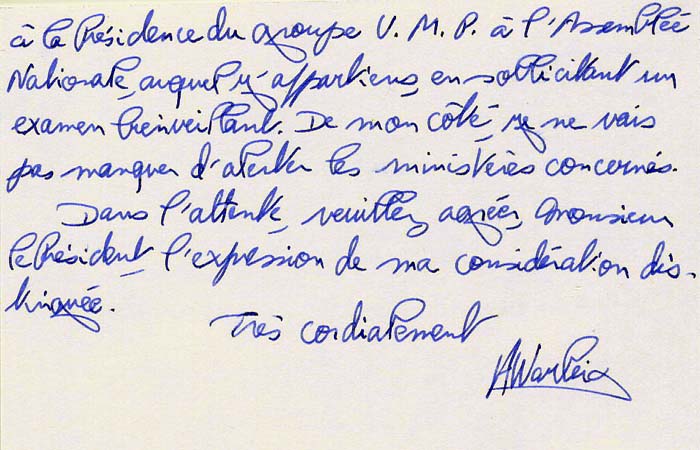 à la Présidence du groupe U.M.P. à l'Assemblée
Nationale, auquel j'appartiens, en sollicitant un
examen bienveillant. De mon côté, je ne vais
pas manquer d'alerter les ministères concernés.
Dans l'attente, veuillez agréer, Monsieur
le Président, l'expression de ma considération dis-
tinguée.
Très cordialement